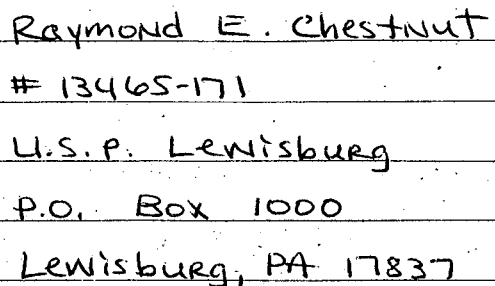 Raymond E. Chestnut
# 13465-171
U.S.P. Lewisburg
P.O. Box 1000
Lewisburg, PA 17837